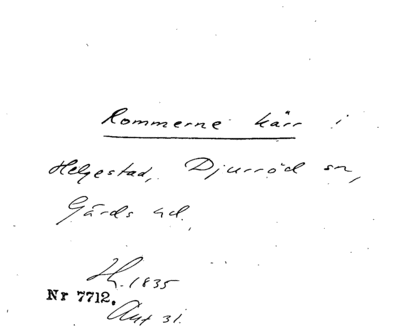 Rommerne kärr i
Helgestad, Djurröd sn,
Gärds hd.
H. 1835
Nr 7712.
Aut 31.